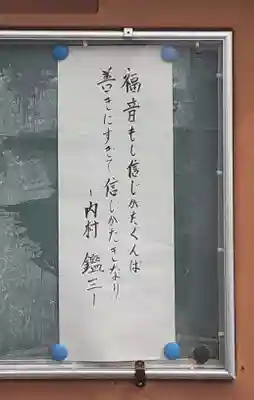 福音もし信じがたくんば
善きにすぎて信じがたきなり
ー内村 鑑三ー